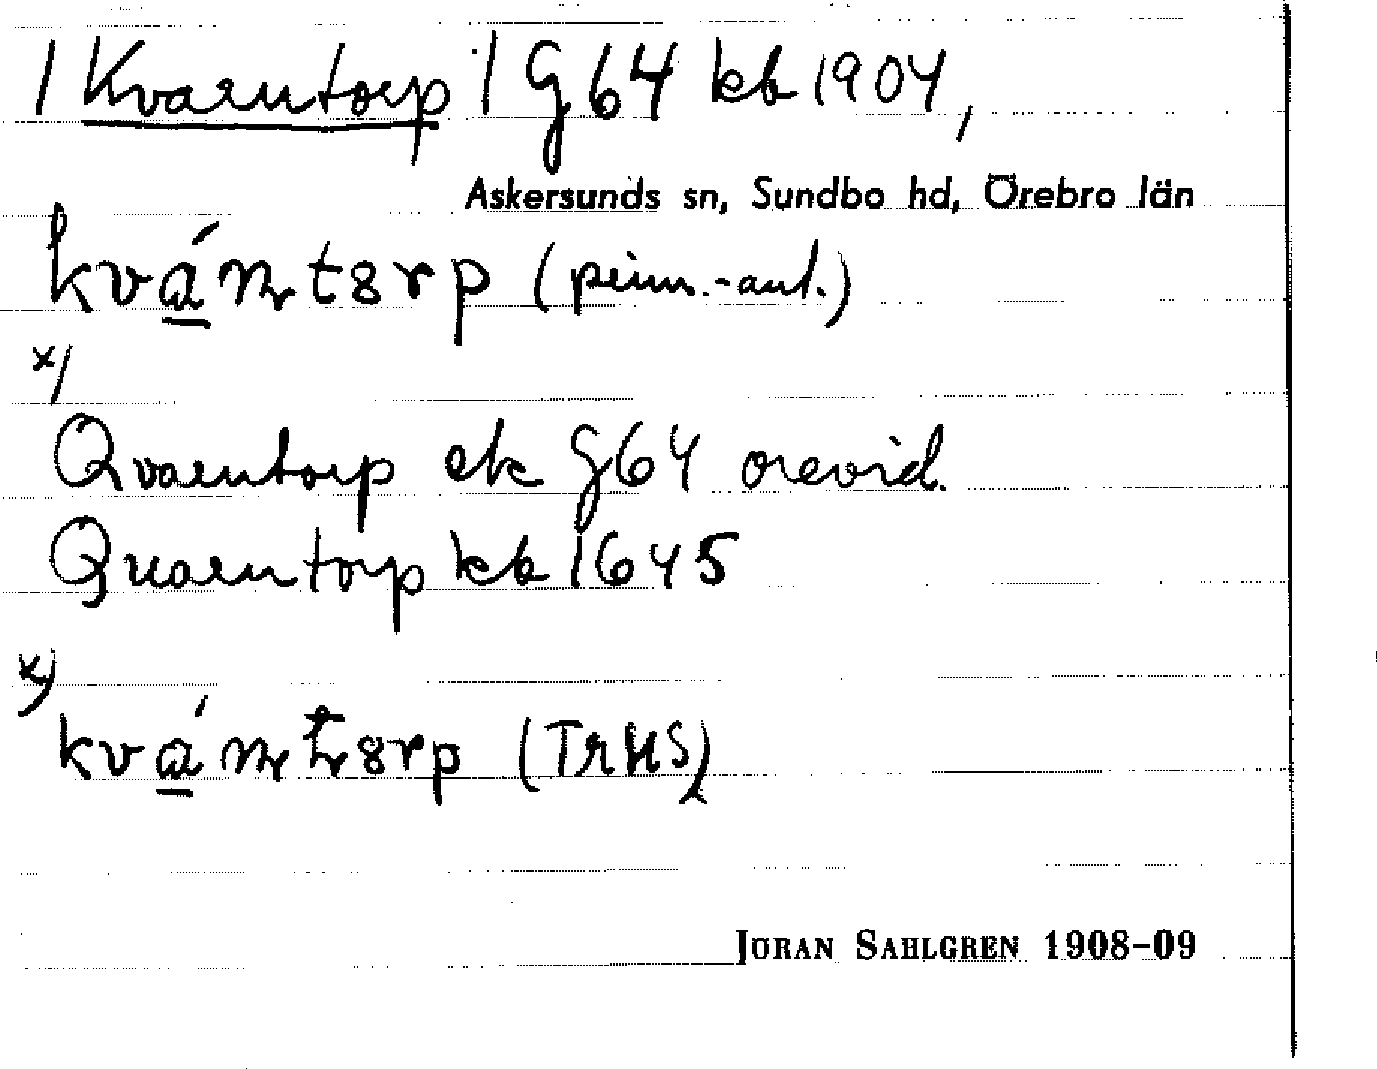 1 Kvarntorp 1 G64 kb 1904,
Askersunds sn, Sundbo hd, Örebro län
kvá̱rntȣrp (pein.-ant.)
x)
Qvarntorp ek G64 orevid.
Quarntorp kb 1645
x)
kvá̱rntȣrp (TrHS)
JÖRAN SAHLGREN 1908-09